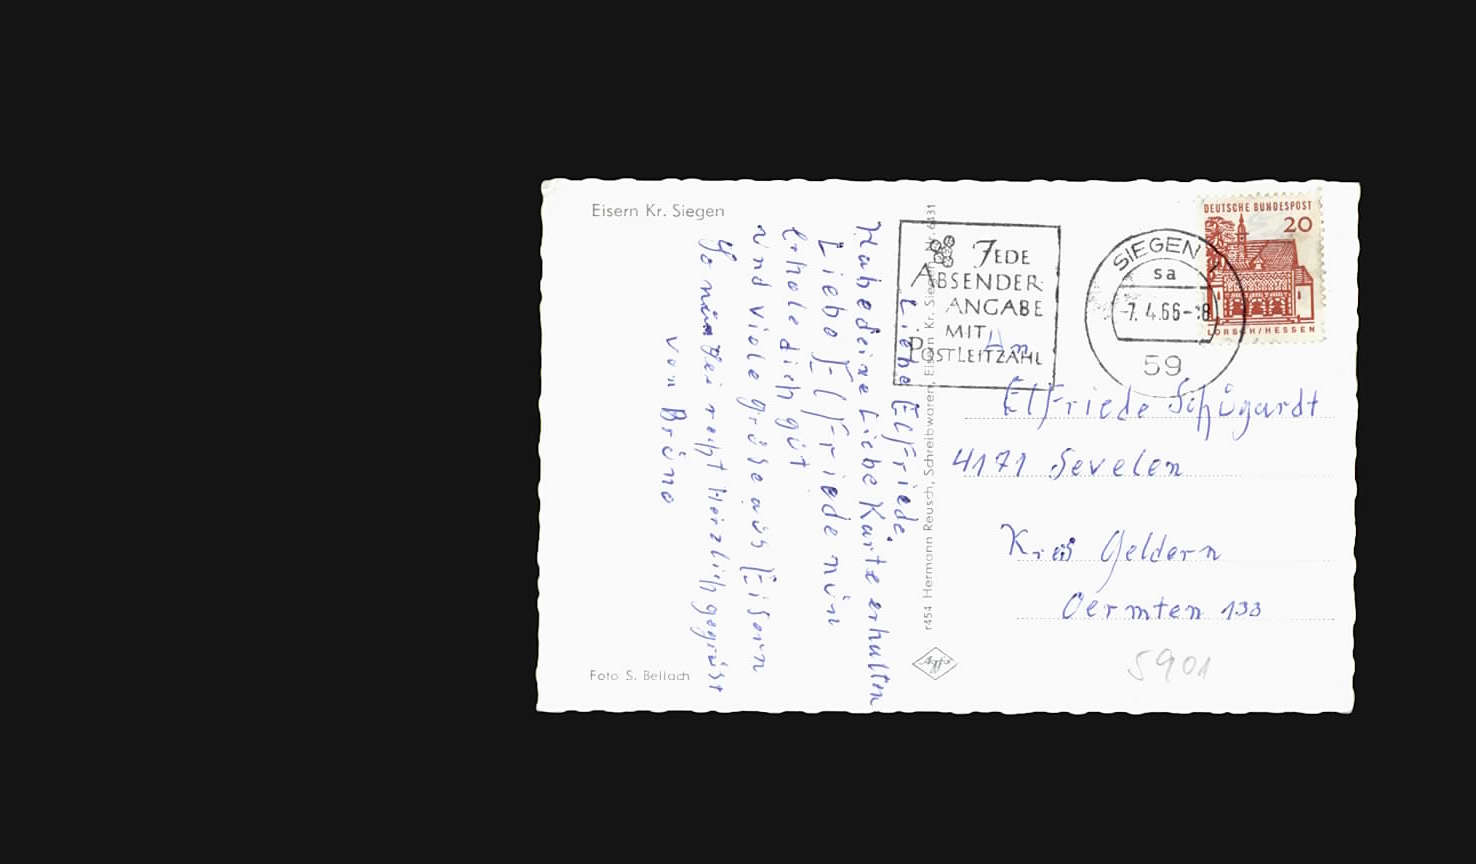 Eisern Kr. Siegen
Liebe Elfriede.
Habe deine Liebe Karte erhalten
Liebe Elfriede nün
erhole dich güt
und viele grüse aüs Eisern
So nün sei recht Herzlich gegrüst
von Brüno
Foto S. Bellach
r454 Hermann Reusch, Schreibwaren, Eisern Kr. Siegen
Agfa
JEDE
ABSENDER-
ANGABE
MIT
POSTLEITZAHL
SIEGEN 1
sa
-7.4.66-18
59
DEUTSCHE BUNDESPOST
20
LORSCH/HESSEN
An
Elfriede Schügardt
4171 Sevelen
Kreis Geldern
Oermten 133
5901